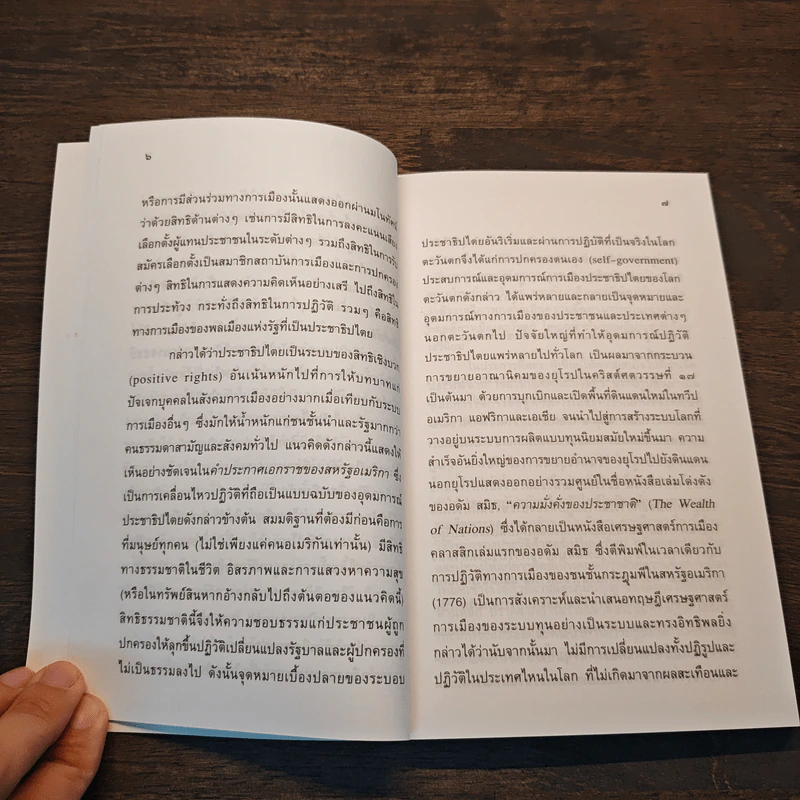 ๖
หรือการมีส่วนร่วมทางการเมืองนั้นแสดงออกผ่านมโนทัศน์
ว่าด้วยสิทธิด้านต่างๆ เช่นการมีสิทธิในการลงคะแนนเสียง
เลือกตั้งผู้แทนประชาชนในระดับต่างๆ รวมถึงสิทธิในการรับ
สมัครเลือกตั้งเป็นสมาชิกสถาบันการเมืองและการปกครอง
ต่างๆ สิทธิในการแสดงความคิดเห็นอย่างเสรี ไปถึงสิทธิใน
การประท้วง กระทั่งถึงสิทธิในการปฏิวัติ รวมๆ คือสิทธิ
ทางการเมืองของพลเมืองแห่งรัฐที่เป็นประชาธิปไตย
กล่าวได้ว่าประชาธิปไตยเป็นระบบของสิทธิเชิงบวก
(positive rights) อันเน้นหนักไปที่การให้บทบาทแก่
ปัจเจกบุคคลในสังคมการเมืองอย่างมากเมื่อเทียบกับระบบ
การเมืองอื่นๆ ซึ่งมักให้น้ำหนักแก่ชนชั้นนำและรัฐมากกว่า
คนธรรมดาสามัญและสังคมทั่วไป แนวคิดดังกล่าวนี้แสดงให้
เห็นอย่างชัดเจนในคำประกาศเอกราชของสหรัฐอเมริกา ซึ่ง
เป็นการเคลื่อนไหวปฏิวัติที่ถือเป็นแบบฉบับของอุดมการณ์
ประชาธิปไตยดังกล่าวข้างต้น สมมติฐานที่ต้องมีก่อนคือการ
ที่มนุษย์ทุกคน (ไม่ใช่เพียงแค่คนอเมริกันเท่านั้น) มีสิทธิ
ทางธรรมชาติในชีวิต อิสรภาพและการแสวงหาความสุข
(หรือในทรัพย์สินหากอ้างกลับไปถึงต้นตอของแนวคิดนี้)
สิทธิธรรมชาตินี้จึงให้ความชอบธรรมแก่ประชาชนผู้ถูก
ปกครองให้ลุกขึ้นปฏิวัติเปลี่ยนแปลงรัฐบาลและผู้ปกครองที่
ไม่เป็นธรรมลงไป ดังนั้นจุดหมายเบื้องปลายของระบอบ
๗
ประชาธิปไตยอันริเริ่มและผ่านการปฏิบัติที่เป็นจริงในโลก
ตะวันตกจึงได้แก่การปกครองตนเอง (self-government)
ประสบการณ์และอุดมการณ์การเมืองประชาธิปไตยของโลก
ตะวันตกดังกล่าว ได้แพร่หลายและกลายเป็นจุดหมายและ
อุดมการณ์ทางการเมืองของประชาชนและประเทศต่างๆ
นอกตะวันตกไป ปัจจัยใหญ่ที่ทำให้อุดมการณ์ปฏิวัติ
ประชาธิปไตยแพร่หลายไปทั่วโลก เป็นผลมาจากกระบวน
การขยายอาณานิคมของยุโรปในคริสต์ศตวรรษที่ ๑๗
เป็นต้นมา ด้วยการบุกเบิกและเปิดพื้นที่ดินแดนใหม่ในทวีป
อเมริกา แอฟริกาและเอเชีย จนนำไปสู่การสร้างระบบโลกที่
วางอยู่บนระบบการผลิตแบบทุนนิยมสมัยใหม่ขึ้นมา ความ
สำเร็จอันยิ่งใหญ่ของการขยายอำนาจของยุโรปไปยังดินแดน
นอกยุโรปแสดงออกอย่างรวมศูนย์ในชื่อหนังสือเล่มโด่งดัง
ของอดัม สมิธ, “ความมั่งคั่งของประชาชาติ” (The Wealth
of Nations) ซึ่งได้กลายเป็นหนังสือเศรษฐศาสตร์การเมือง
คลาสสิกเล่มแรกของอดัม สมิธ ซึ่งตีพิมพ์ในเวลาเดียวกับ
การปฏิวัติทางการเมืองของชนชั้นกระฎุมพีในสหรัฐอเมริกา
(1776) เป็นการสังเคราะห์และนำเสนอทฤษฎีเศรษฐศาสตร์
การเมืองของระบบทุนอย่างเป็นระบบและทรงอิทธิพลยิ่ง
กล่าวได้ว่านับจากนั้นมา ไม่มีการเปลี่ยนแปลงทั้งปฏิรูปและ
ปฏิวัติในประเทศไหนในโลก ที่ไม่เกิดมาจากผลสะเทือนและ